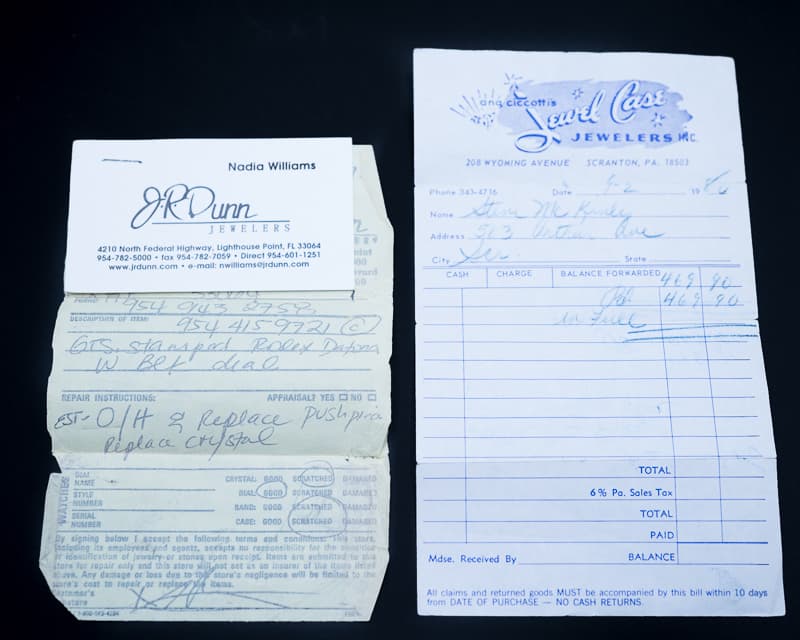 Nadia Williams
J.R. Dunn
JEWELERS
4210 North Federal Highway, Lighthouse Point, FL 33064
954-782-5000 • fax 954-782-7059 • Direct 954-601-1251
www.jrdunn.com • e-mail: nwilliams@jrdunn.com
954 943
DESCRIPTION OF ITEM:
954 415 9721 (C)
GTS. Stamped Rolex
W Blk dial
REPAIR INSTRUCTIONS: APPRAISAL? YES NO
EST- O/H & Replace pushpins
Replace crystal
WATCHES
NAME CRYSTAL: GOOD SCRATCHED DAMAGED
STYLE NUMBER DIAL: GOOD SCRATCHED DAMAGED
SERIAL NUMBER BAND: GOOD SCRATCHED DAMAGED
CASE: GOOD SCRATCHED DAMAGED
By signing below I accept the following terms and conditions: This store,
including its employees and agents, accepts no responsibility for the condition
or identification of jewelry or stones upon receipt. Items are submitted to this
store for repair only and this store will not act as an insurer of the items listed
above. Any damage or loss due to this store's negligence will be limited to the
store's cost to repair or replace the items.
ana ciccotti's
Jewel Case
JEWELERS INC.
208 WYOMING AVENUE SCRANTON, PA. 18503
Phone 343-4716 Date 9-2 1980
Name Steve McKinley
Address 903 Arthur Ave
City Scr. State
CASH CHARGE BALANCE FORWARDED 469 90
Pd. 469 90
in Full
TOTAL
6% Pa. Sales Tax
TOTAL
PAID
Mdse. Received By BALANCE
All claims and returned goods MUST be accompanied by this bill within 10 days
from DATE OF PURCHASE — NO CASH RETURNS.